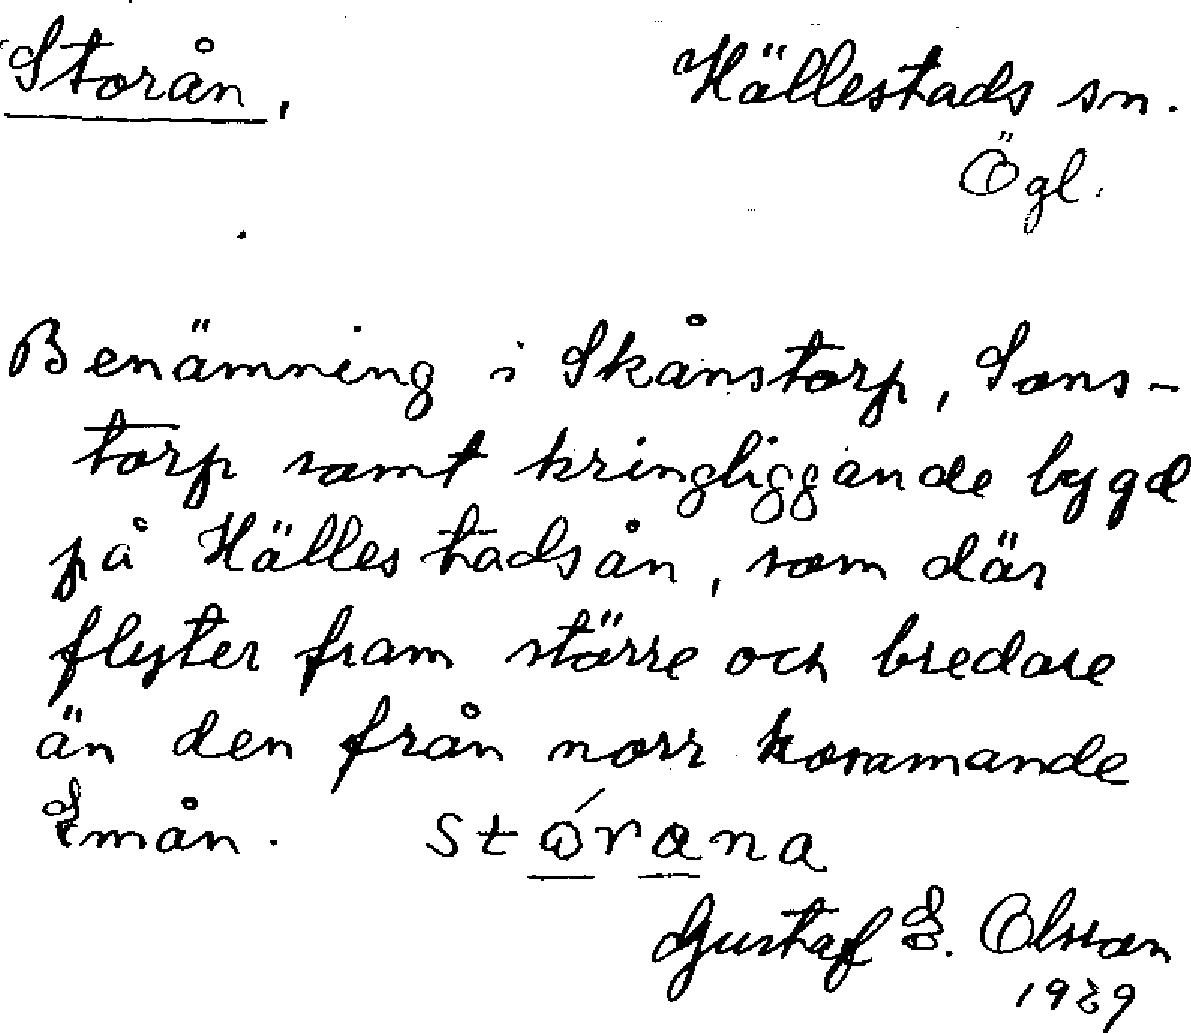 Storån,
Hällestads sn.
Ögl.
Benämning i Skånstorp, Sons-
torp samt kringliggande bygd
på Hällestadsån, som där
flyter fram större och bredare
än den från norr kommande
Emån. Stórana
Gustaf E. Olsson
1929